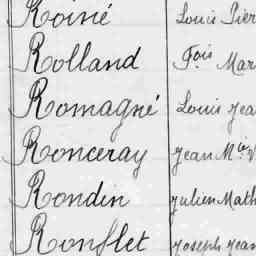 Roiné Louis Pier
Rolland Fois Mar
Romagné Louis Jea
Ronceray Jean Mie V
Rondin Julien Math
Ronflet Joseph Jean